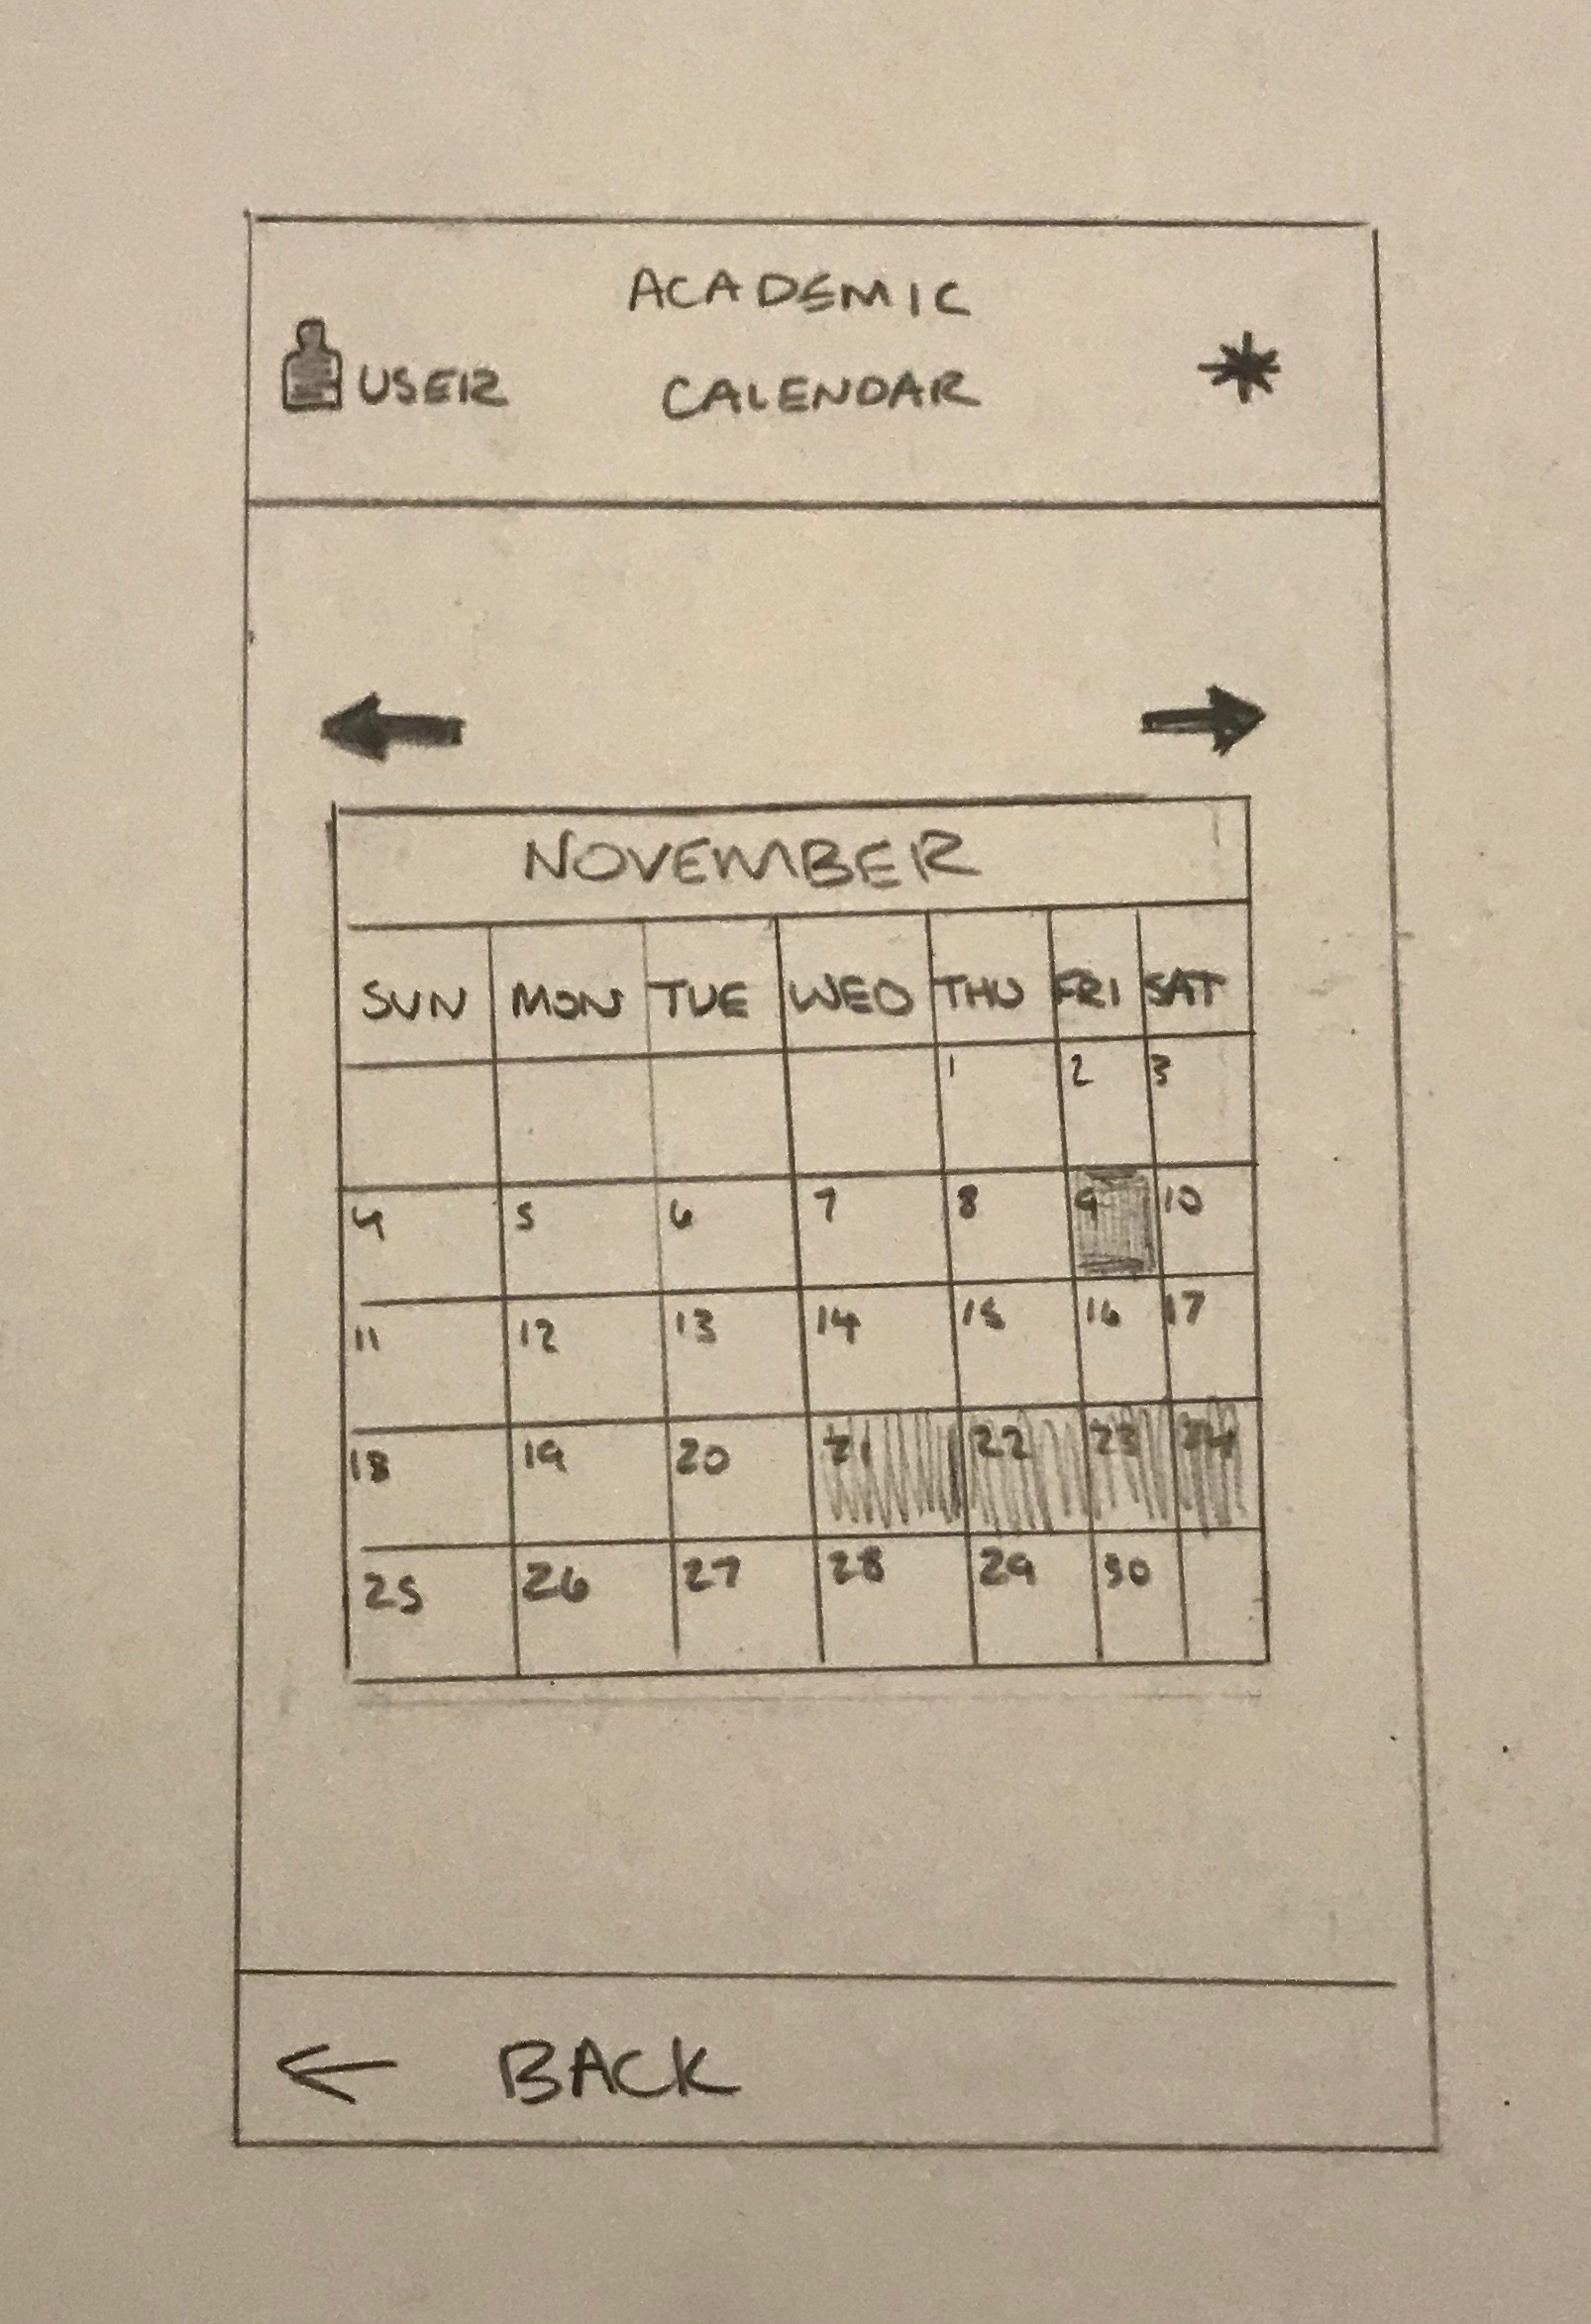 ACADEMIC
USER CALENDAR
NOVEMBER
SUN MON TUE WED THU FRI SAT
1 2 3
4 5 6 7 8 9 10
11 12 13 14 15 16 17
18 19 20 21 22 23 24
25 26 27 28 29 30
BACK